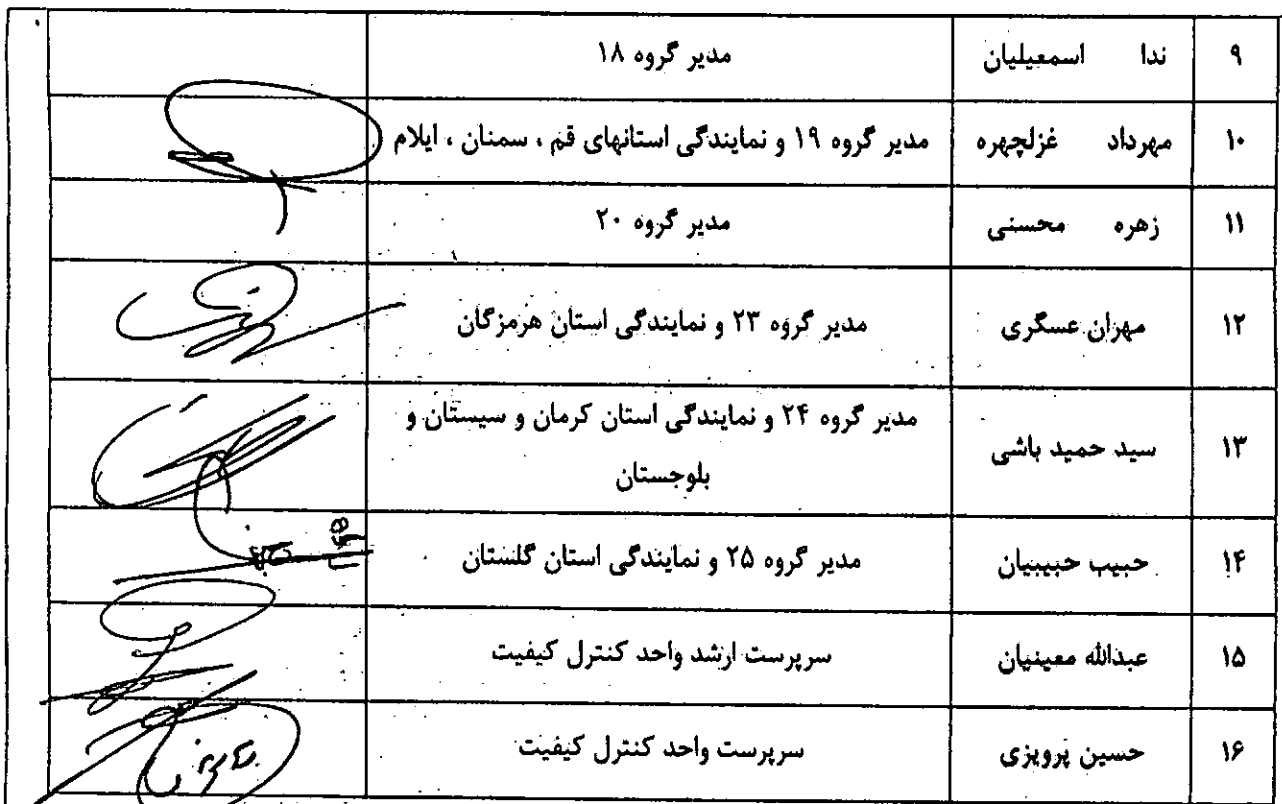 ۹ ندا اسمعیلیان مدیر گروه ۱۸
۱۰ مهرداد غزلچهره مدیر گروه ۱۹ و نمایندگی استانهای قم ، سمنان ، ایلام
۱۱ زهره محسنی مدیر گروه ۲۰
۱۲ مهران عسگری مدیر گروه ۲۳ و نمایندگی استان هرمزگان
۱۳ سید حمید باشی مدیر گروه ۲۴ و نمایندگی استان کرمان و سیستان و
بلوجستان
۱۴ حبیب حبیبیان مدیر گروه ۲۵ و نمایندگی استان گلستان
۱۵ عبدالله معینیان سرپرست ارشد واحد کنترل کیفیت
۱۶ حسین پرویزی سرپرست واحد کنترل کیفیت